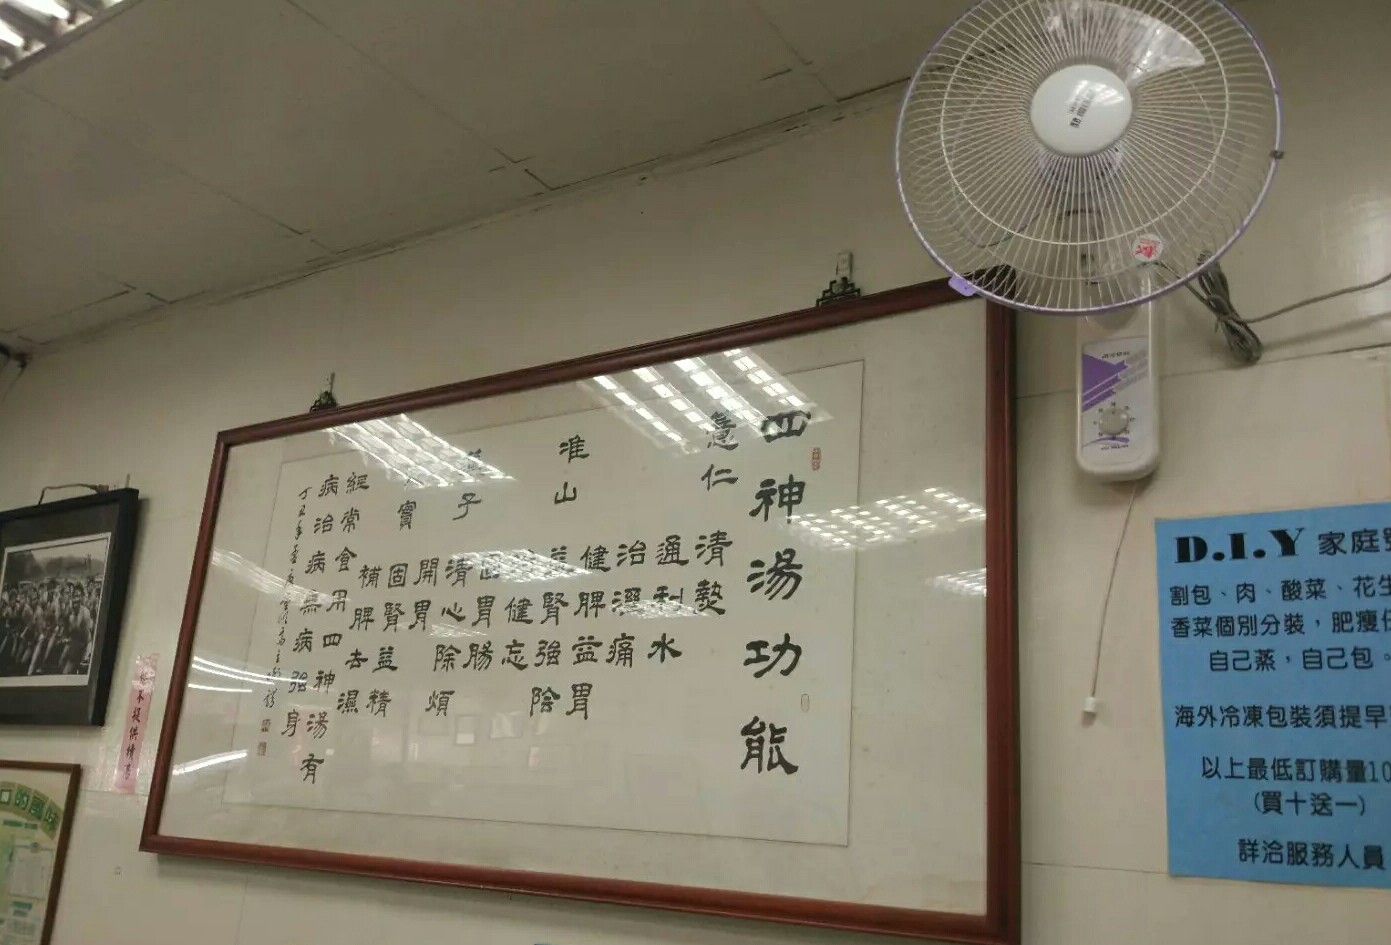 四神湯功能
薏仁
清熱
通利水
治濕痛
淮山
健脾益胃
益腎強陰
健忘
子
固胃腸
清心除煩
開胃
實
固腎益精
補脾去濕
經常食用四神湯有
病治病無病強身
丁丑年
D.I.Y 家庭
割包、肉、酸菜、花生
香菜個別分裝，肥瘦任
自己蒸，自己包。
海外冷凍包裝須提早
以上最低訂購量10
(買十送一)
詳洽服務人員
不提供
口的風味